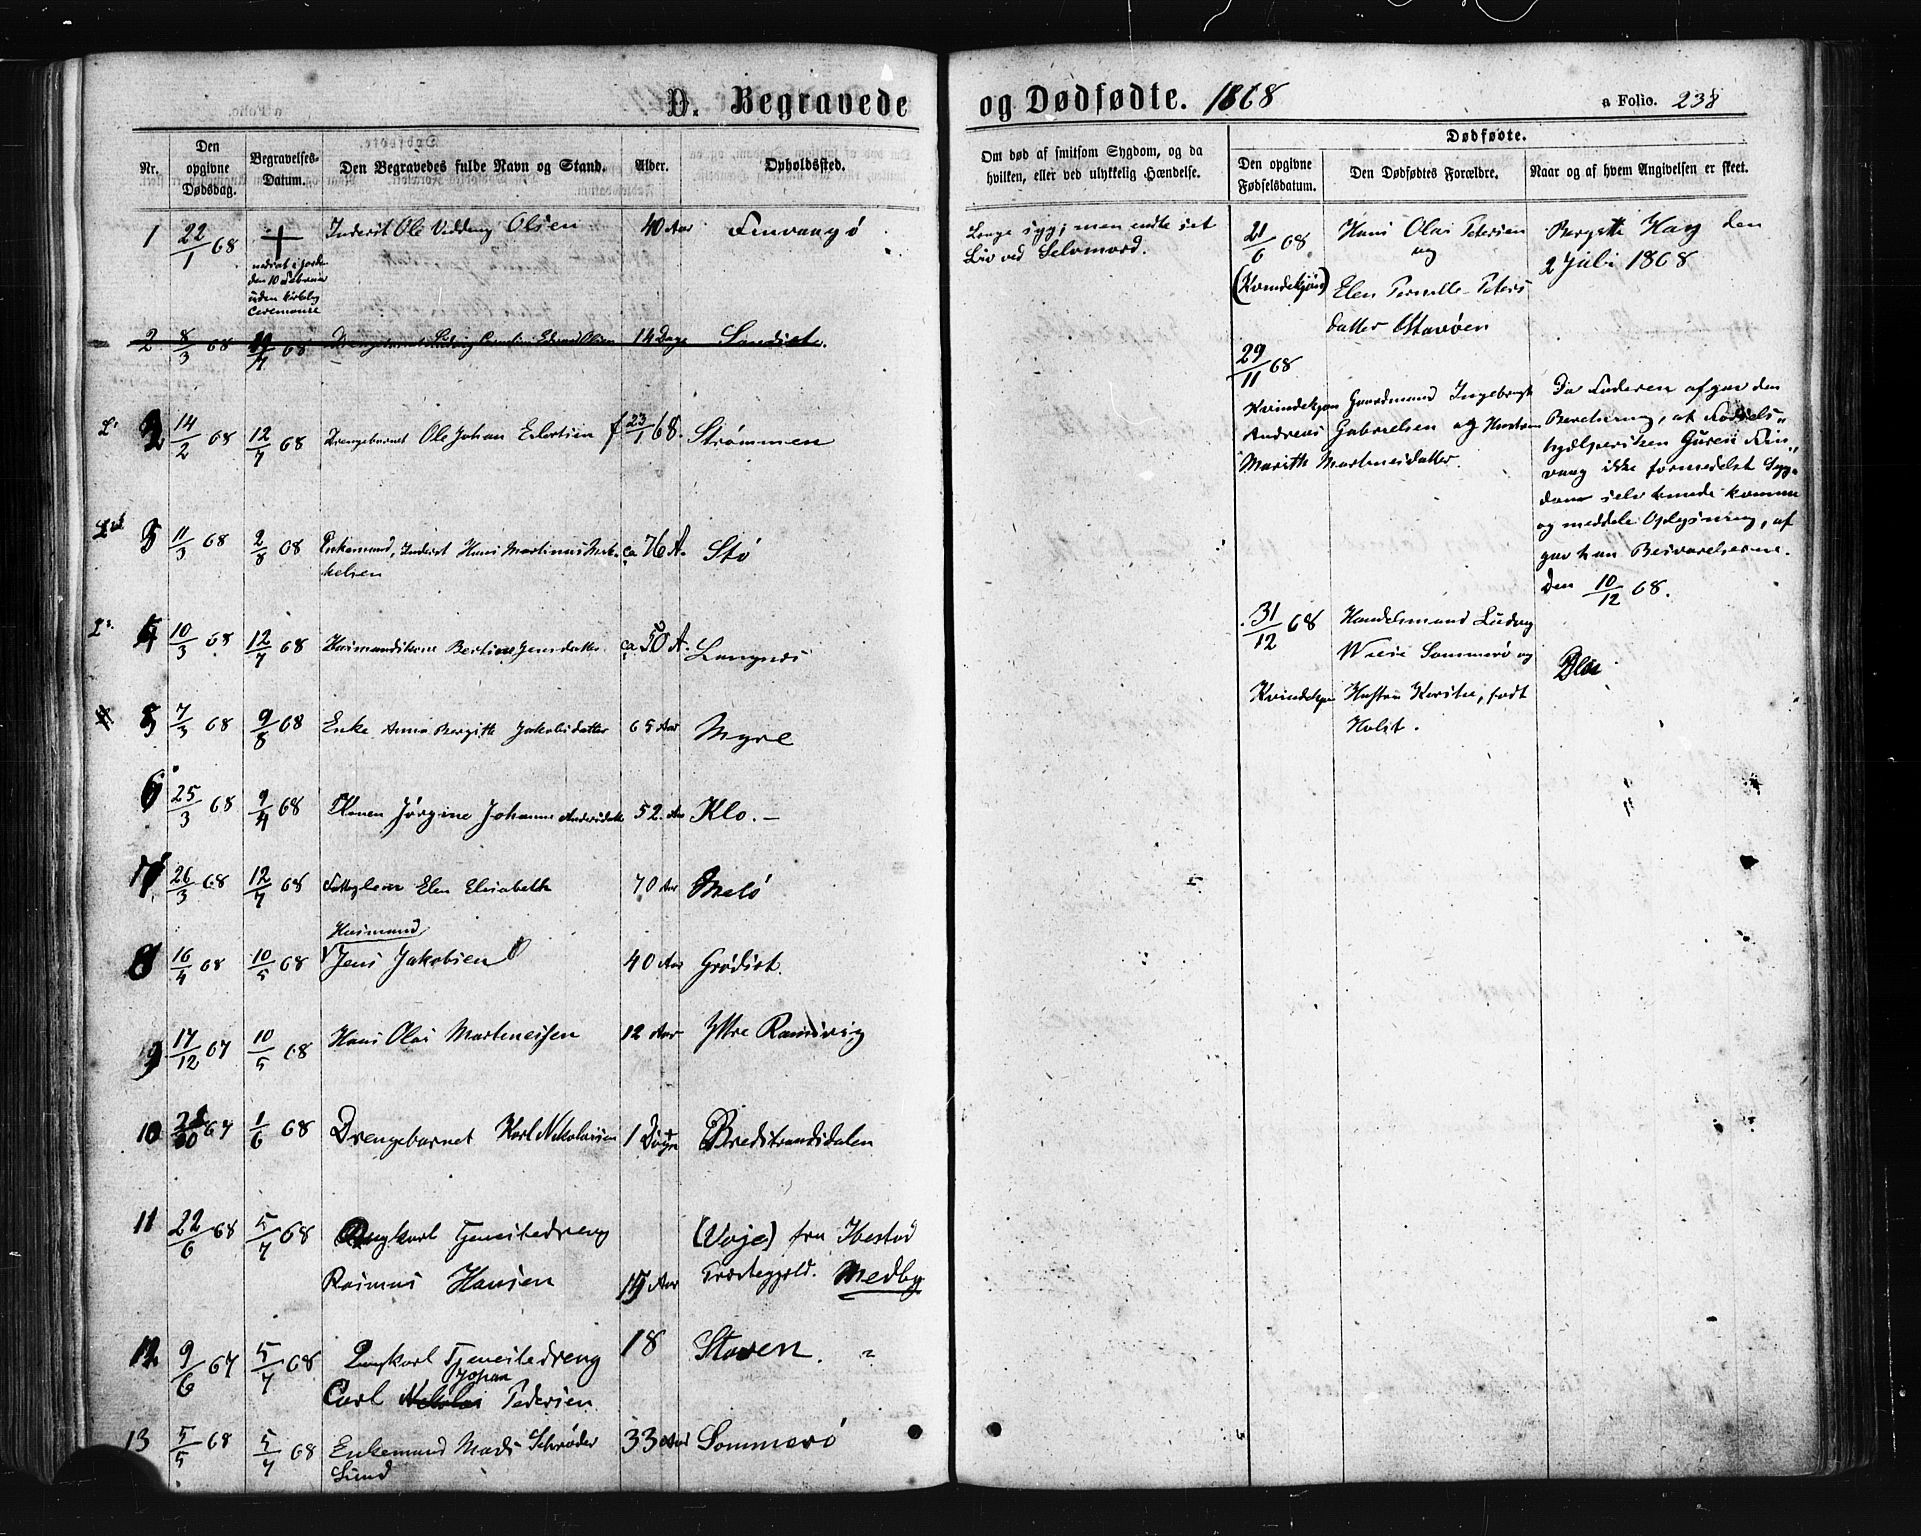 D. Begravede og Dødfødte. 1868
a Folio. 238
Nr.
Den opgivne Dødsdag.
Begravelses-Datum.
Den Begravedes fulde Navn og Stand.
Alder.
Opholdssted.
Om død af smitsom Sygdom, og da hvilken, eller ved ulykkelig Hændelse.
Dødfødte.
Den opgivne Fødselsdatum.
Den Dødfødtes Forældre.
Naar og af hvem Angivelsen er skeet.
1 22/1 68 + Inderst Ole Olsen 40 Aar Finvaagø
nedsat i Jorden
den 10 Februar
uden kirkelig
Ceremonie
2 8/3 68 68 Olsen 14 Dage
14/2 68 12/7 68 Drengebarnet Ole Johan Eilertsen f 23/1 68. Strømmen
11/3 68 2/8 68 Enkemand, Inderst Hans Martinus Mik-
kelsen ca 76 A. Stø
4 10/3 68 12/7 68 Husmandskone Bertine Jensdatter ca 50 A. Langnes
5 7/3 68 9/8 68 Enke Anne Bergitte Jakobsdatter 65 Aar Myre
6 25/3 68 9/4 68 Konen Jørgine Johanna Andersdatter 52 Aar Klo. —
7 26/3 68 12/7 68 Elen Elisabeth 70 Aar Melø
Husmand
8 16/4 68 10/5 68 Jens Jakobsen 40 Aar Grødist.
9 17/12 67 10/5 68 Hans Olai Martinessen 12 Aar Yttre Ramsvig
10 67 1/6 68 Drengebarnet Karl Nikolaisen 1 Døgn Bredstrandsdalen
11 22/6 68 5/7 68 Ungkarl Tjenestedreng (Vaje) fra Ibestad
Rasmus Hansen 19 Aar Præstegjeld. Medby
12 9/6 67 5/7 68 Ungkarl Tjenestedreng 18 Staven. "
Johan
Carl Nikolai Pedersen
13 5/5 68 5/7 68 Enkemand Mads Schrøder 33 Aar Sommerø
Lund
Længe syg; men endte sit
Liv ved Selvmord.
21/6 68 Hans Olai Petersen
og
(Kvindekjøn) Elen Pernille Peters
datter Stavøen
Bergitte Hay den
2 Juli 1868
29/11 68
Kvindekjøn Gaardmand Ingebrigt
Andreas Gabrielsen og Hustru
Marith Martinesdatter.
Da Faderen afgav den
Beretning, at Fødsels-
hjælpersken Guren Fin-
vaag ikke formedelst Syg-
dom selv kunde komme
og meddele Oplysning, af
gav han Besvarelserne.
Den 10/12 68.
31/12 68 Handelsmand Ludvig
Wiese Sommerø og
Kvindekjøn Hustru Kirstie, født
Holst.